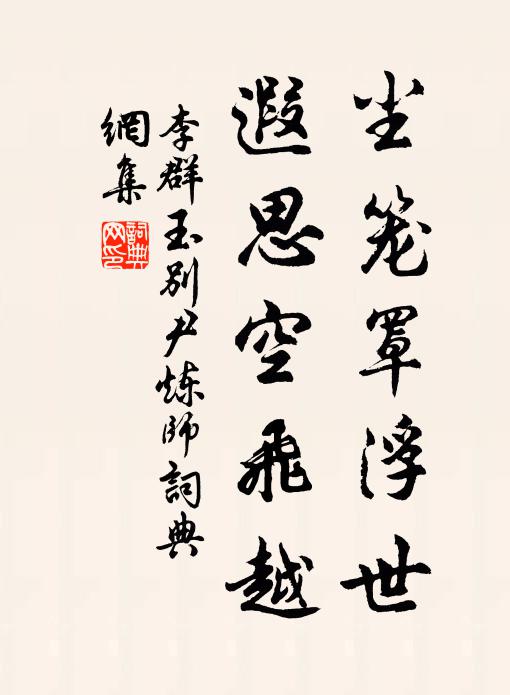 尘笼罩浮世
遐思空飛越
李群玉别尹炼師詞典
網集
詞典
网印